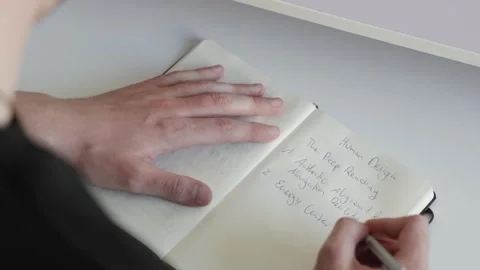 Human Design
The Deep Reading
1. Authentic Alignment &
Navigation
2. Energy Center